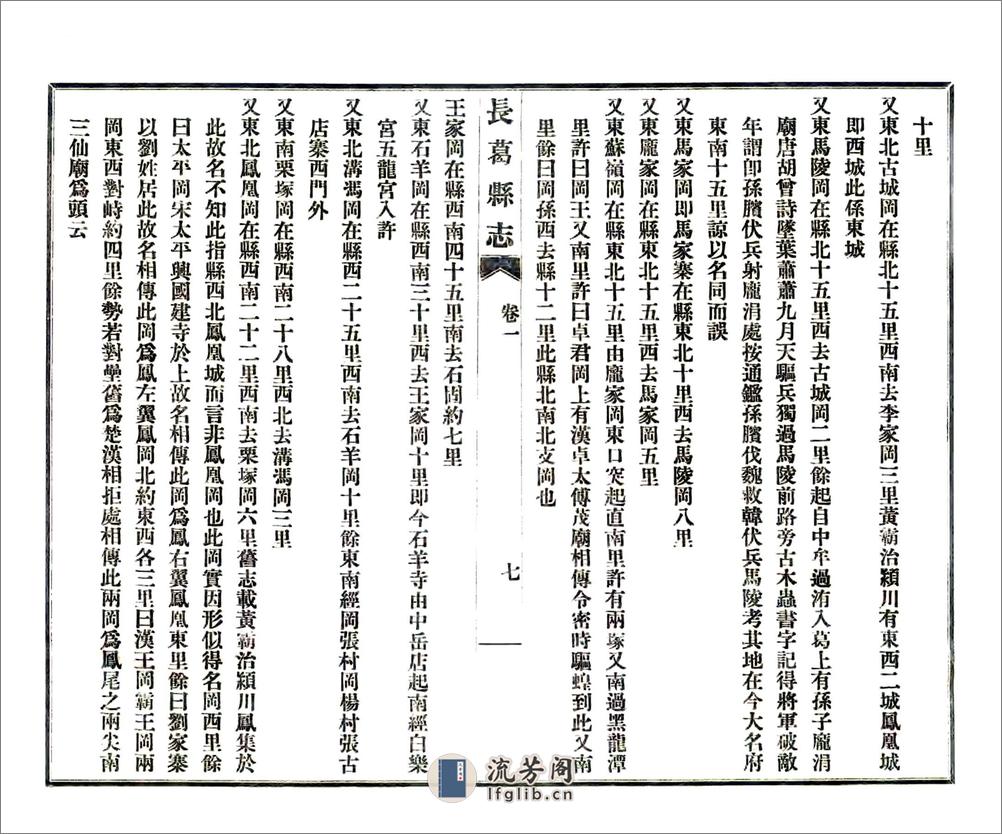 十里
又東北古城岡在縣北十五里西南去李家岡三里黃霸治潁川有東西二城鳳凰城
即西城此係東城
又東馬陵岡在縣北十五里西去古城岡二里餘起自中牟過洧入葛上有孫子龐涓
廟唐胡曾詩墜葉蕭蕭九月天驅兵獨過馬陵前路旁古木蟲書字記得將軍破敵
年謂卽孫臏伏兵射龐涓處按通鑑孫臏伐魏救韓伏兵馬陵考其地在今大名府
東南十五里諒以名同而誤
又東馬家岡即馬家寨在縣東北十里西去馬陵岡八里
又東龐家岡在縣東北十五里西去馬家岡五里
又東蘇嶺岡在縣東北十五里由龐家岡東口突起直南里許有兩塚又南過黑龍潭
里許曰岡王又南里許曰卓君岡上有漢卓太傅茂廟相傳令密時驅蝗到此又南
里餘曰岡孫西去縣十二里此縣北南北支岡也
長葛縣志
卷一
七
王家岡在縣西南四十五里南去石固約七里
又東石羊岡在縣西南三十里西去王家岡十里即今石羊寺由中岳店起南經白樂
宮五龍宮入許
又東北溝馮岡在縣西二十五里西南去石羊岡十里餘東南經岡張村岡楊村張古
店寨西門外
又東南栗塚岡在縣西南二十八里西北去溝馮岡三里
又東北鳳凰岡在縣西南二十二里西南去栗塚岡六里舊志載黃霸治潁川鳳集於
此故名不知此指縣西北鳳凰城而言非鳳凰岡也此岡實因形似得名岡西里餘
曰太平岡宋太平興國建寺於上故名相傳此岡爲鳳右翼鳳凰東里餘曰劉家寨
以劉姓居此故名相傳此岡爲鳳左翼鳳岡北約東西各三里曰漢王岡霸王岡兩
岡東西對峙約四里餘勢若對壘舊爲楚漢相拒處相傳此兩岡爲鳳尾之兩尖南
三仙廟爲頭云
流芳阁
lfglib.cn